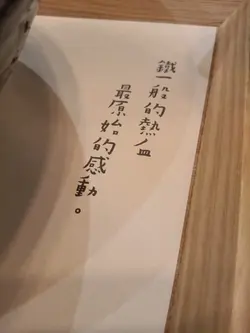 鐵一般的熱血
最原始的感動。